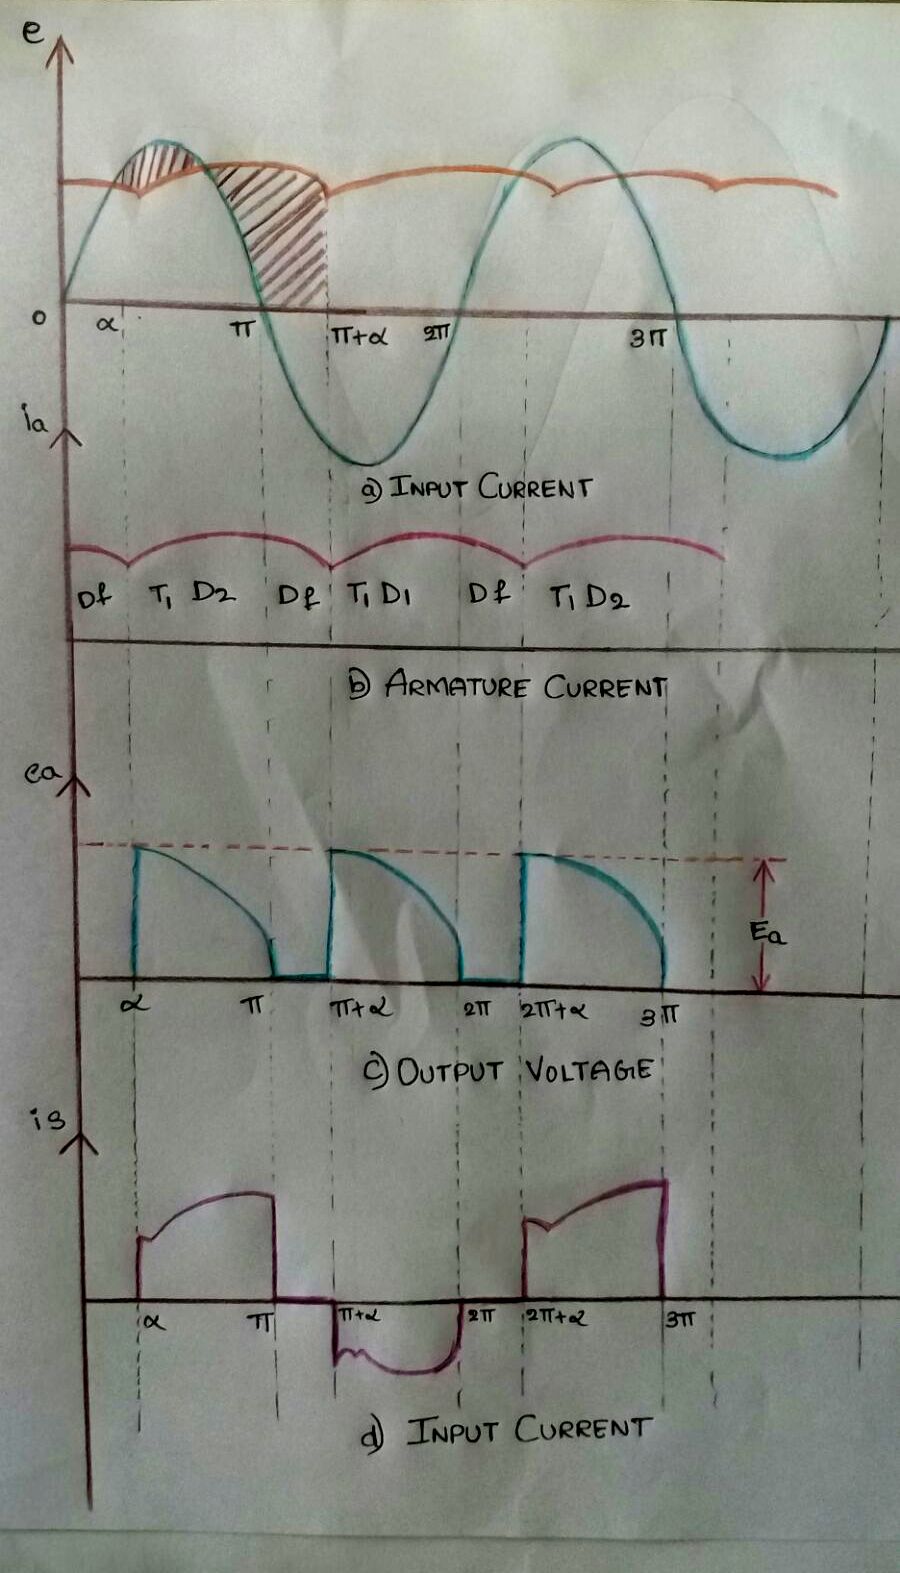 e
0 α π π+α 2π 3π
ia
a) INPUT CURRENT
Df T₁ D₂ Df T₁ D₁ Df T₁ D₂
b) ARMATURE CURRENT
ea
Ea
α π π+α 2π 2π+α 3π
c) OUTPUT VOLTAGE
is
α π π+α 2π 2π+α 3π
d) INPUT CURRENT